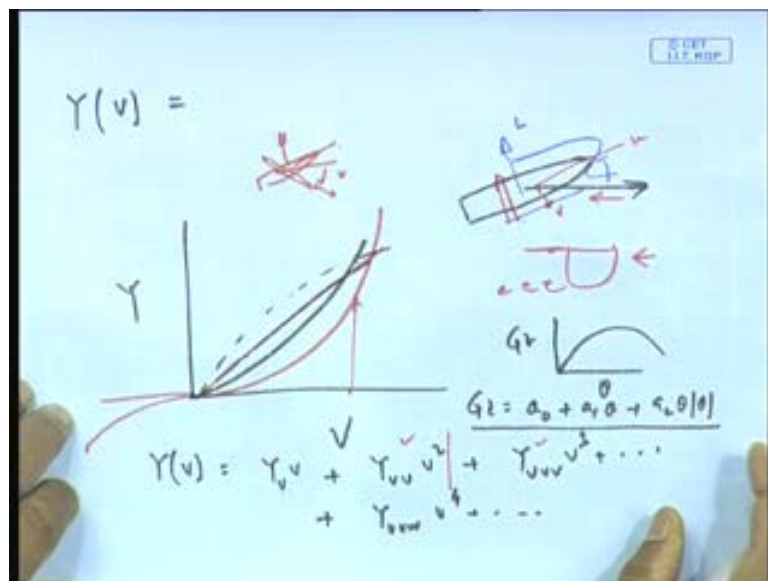 © CET
I.I.T. KGP
Y(v) =
L
v
Y
Gz
θ
Gz = a₀ + a₁θ + a₂θ|θ|
V
Y(v) = Y_v v + Y_vv v² + Y_vvv v³ + ...
+ Y_vvvv v⁴ + ...